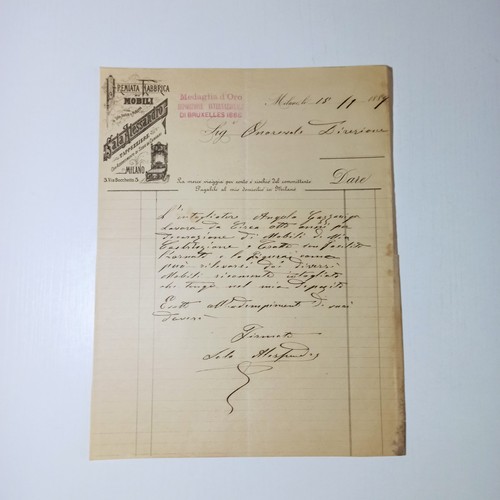 PREMIATA FABBRICA
DI
MOBILI
Sala Alessandro
TAPPEZZIERE
MILANO
3. Via Bocchetto. 3
Medaglia d'Oro
ESPOSIZIONE INTERNAZIONALE
DI BRUXELLES 1888
Milano, li 15/1 1889
Sig. Onorevole Direzione
Dare
Per merce viaggia per conto e rischio del committente
Pagabile al mio domicilio in Milano
L'intagliatore Angelo
lavora da Circa otto anni per
decorazione di Mobili di mia
Costruzione e Tratta con facilità
l'ornato e la figura come
può rilevarsi dai diversi
Mobili riccamente intagliati
che tengo nel mio Deposito
Esatto all'adempimento di suoi
doveri
Firmato
Sala Alessandro